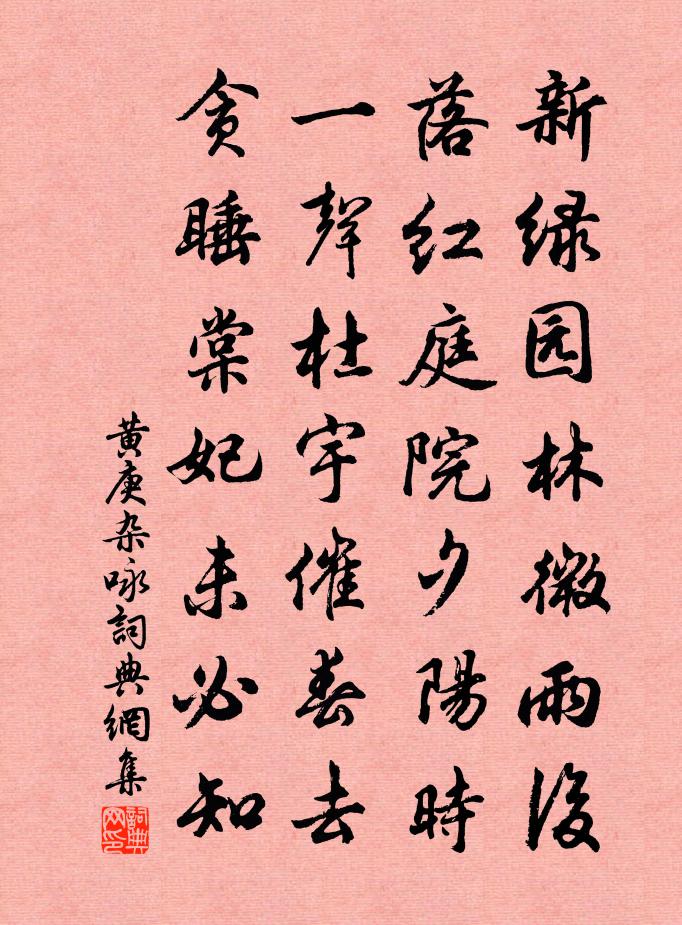 新绿园林微雨後
落红庭院夕陽時
一聲杜宇催春去
贪睡棠妃未必知
黄庚杂咏詞典網集
詞典网印